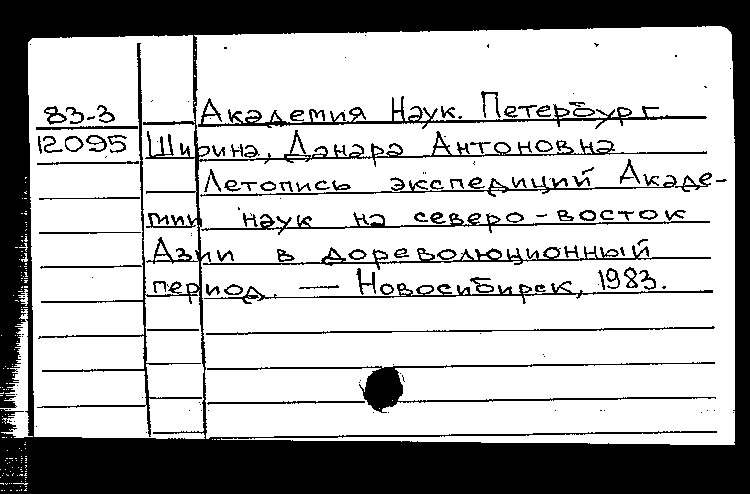 83-3 Академия Наук. Петербург
12095 Ширина, Данара Антоновна
Летопись экспедиций Акаде-
мии наук на северо-восток
Азии в дореволюционный
период. — Новосибирск, 1983.